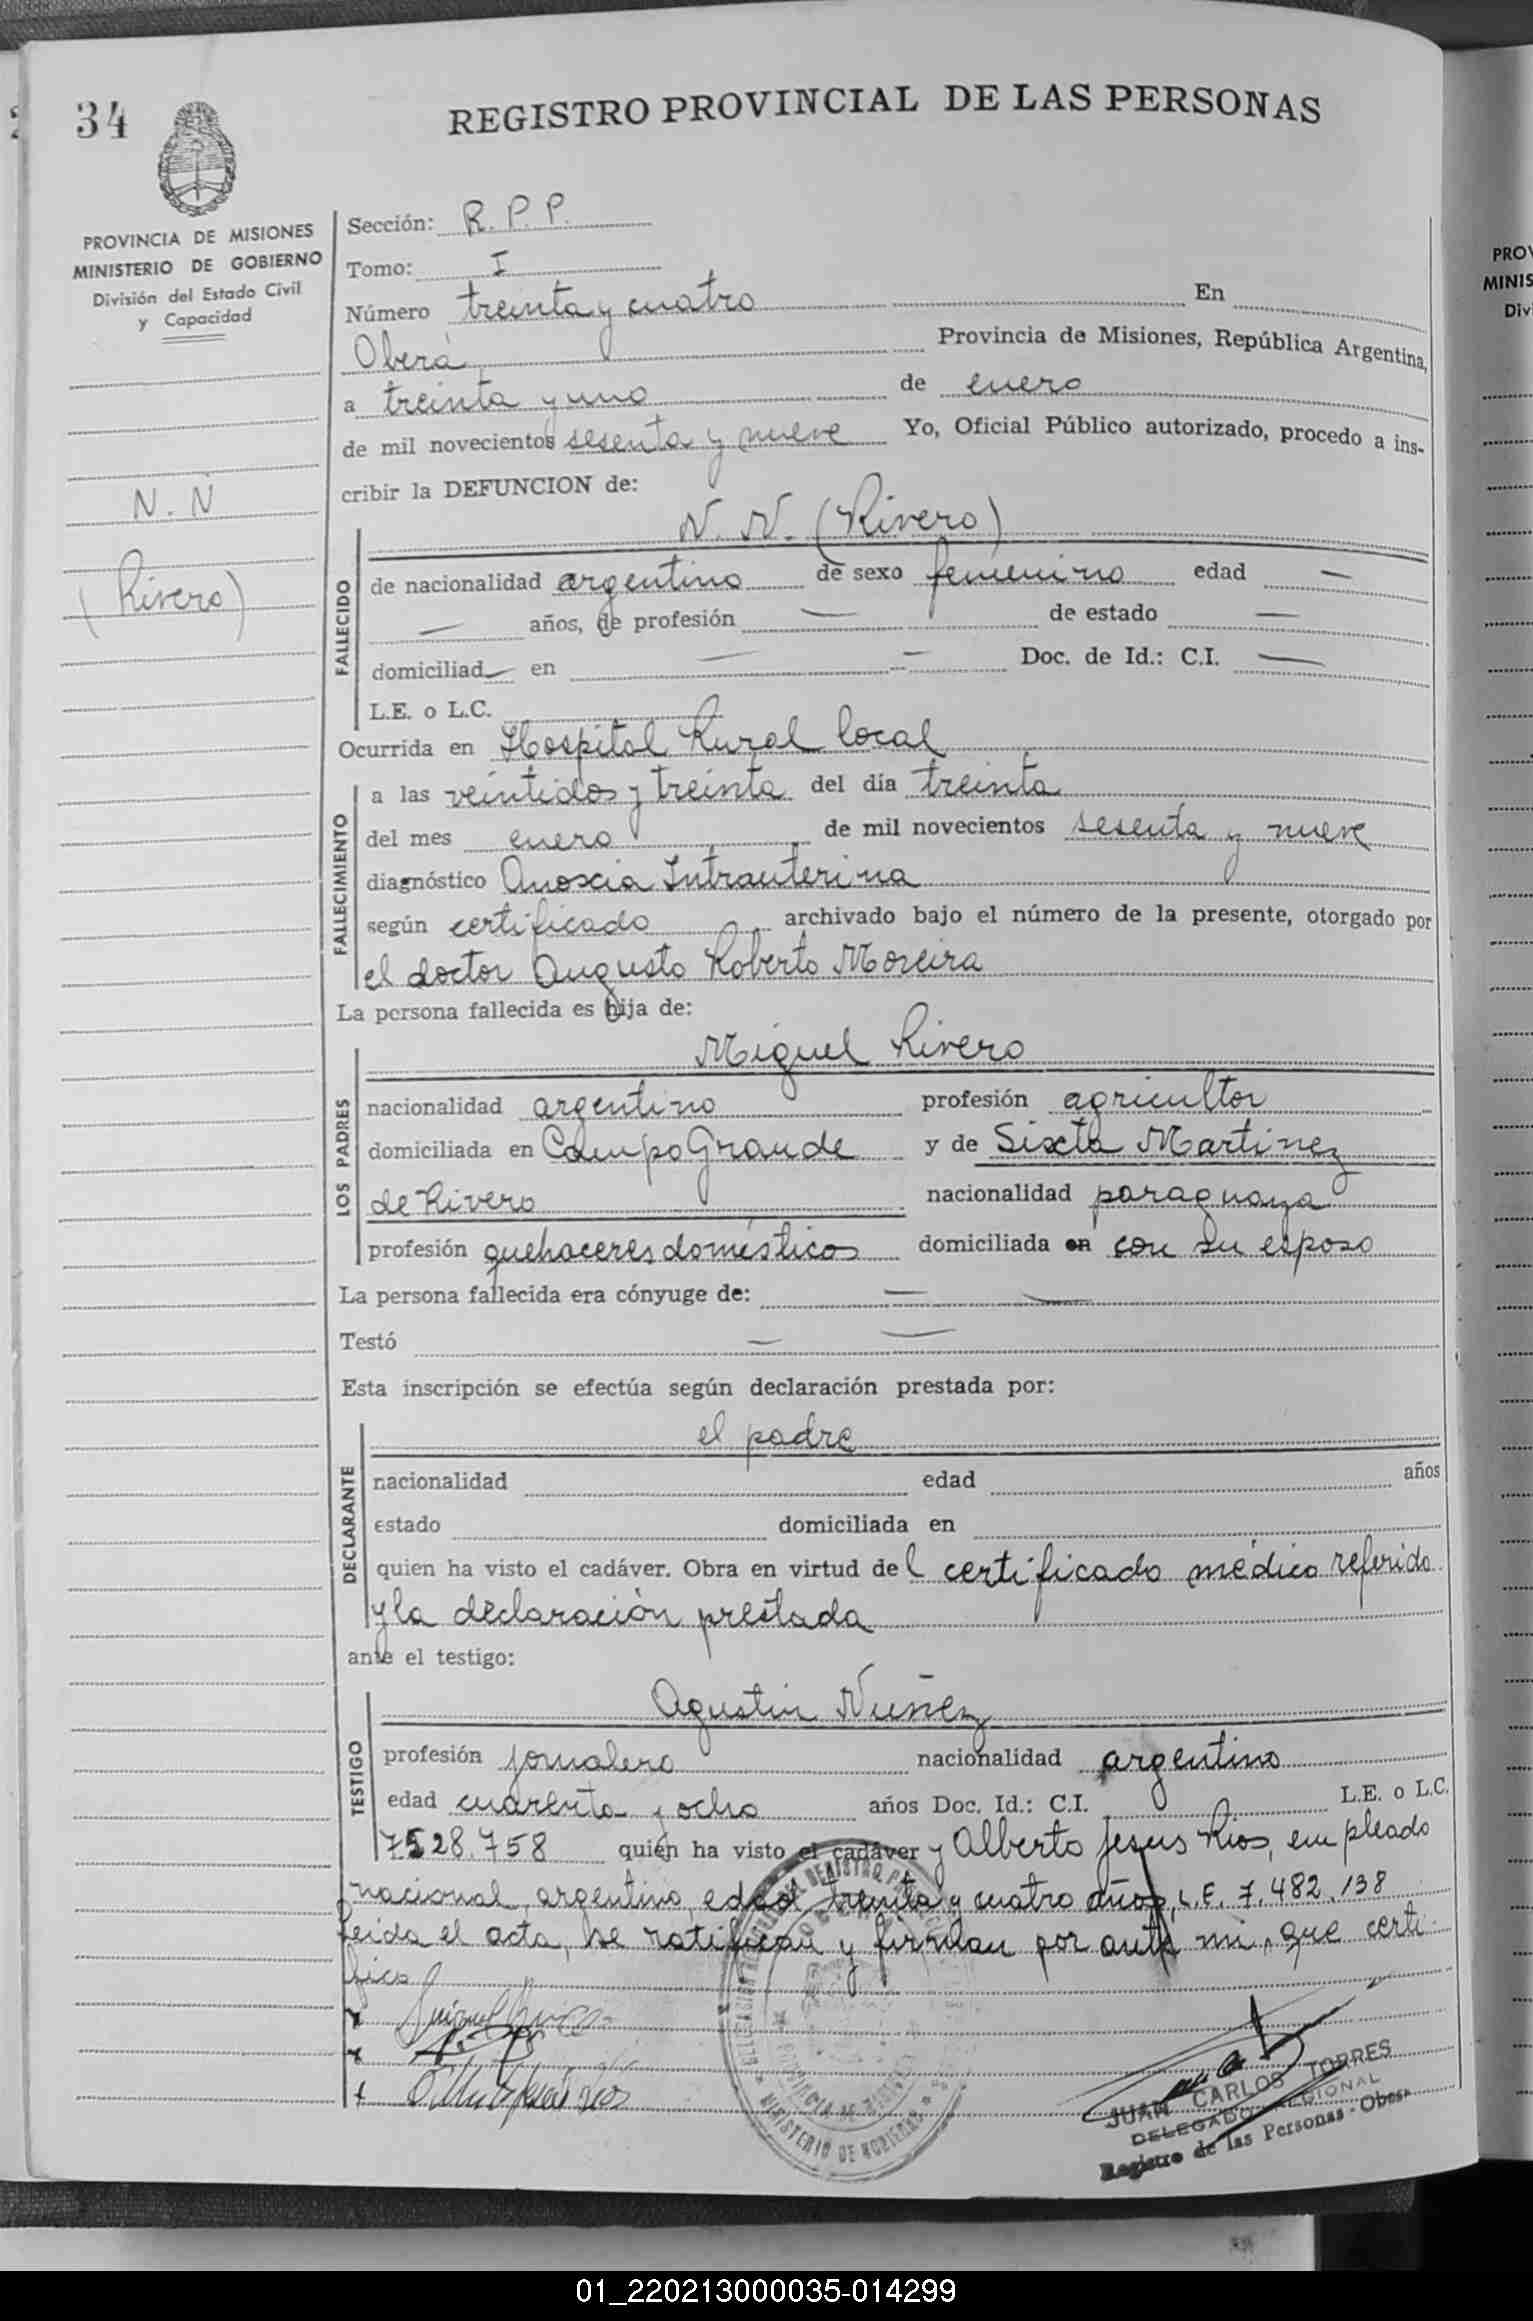 34
REGISTRO PROVINCIAL DE LAS PERSONAS
PROVINCIA DE MISIONES
MINISTERIO DE GOBIERNO
División del Estado Civil
y Capacidad
N. N
(Rivero)
Sección: R. P. P.
Tomo: I
Número treinta y cuatro En
Oberá Provincia de Misiones, República Argentina,
a treinta y uno de enero
de mil novecientos sesenta y nueve Yo, Oficial Público autorizado, procedo a ins-
cribir la DEFUNCION de:
N. N. (Rivero)
FALLECIDO
de nacionalidad argentino de sexo femenino edad —
— años, de profesión — de estado —
domiciliad— en — — Doc. de Id.: C.I. —
L.E. o L.C.
Ocurrida en Hospital Rural local
FALLECIMIENTO
a las veintidos y treinta del día treinta
del mes enero de mil novecientos sesenta y nueve
diagnóstico Anoxia Intrauterina
según certificado archivado bajo el número de la presente, otorgado por
el doctor Augusto Roberto Moreira
La persona fallecida es hija de:
LOS PADRES
Miguel Rivero
nacionalidad argentino profesión agricultor
domiciliada en Campo Grande y de Sixta Martinez
de Rivero nacionalidad paraguaya
profesión quehaceres domésticos domiciliada en con su esposo
La persona fallecida era cónyuge de: — —
Testó — —
Esta inscripción se efectúa según declaración prestada por:
DECLARANTE
el padre
nacionalidad edad años
estado domiciliada en
quien ha visto el cadáver. Obra en virtud del certificado médico referido
y la declaración prestada
ante el testigo:
TESTIGO
Agustin Nuñez
profesión jornalero nacionalidad argentino
edad cuarenta y ocho años Doc. Id.: C.I. L.E. o L.C.
7528.758 quien ha visto el cadáver y Alberto Jesus Rios, empleado
nacional, argentino, edad treinta y cuatro años, L.E. 7.482.138
Leida el acta, se ratifican y firman por ante mi, que certi-
fico
MINISTERIO DE GOBIERNO
JUAN CARLOS TORRES
DELEGADO REGIONAL
Registro de las Personas - Oberá
PROV
MINIS
Div
01_220213000035-014299